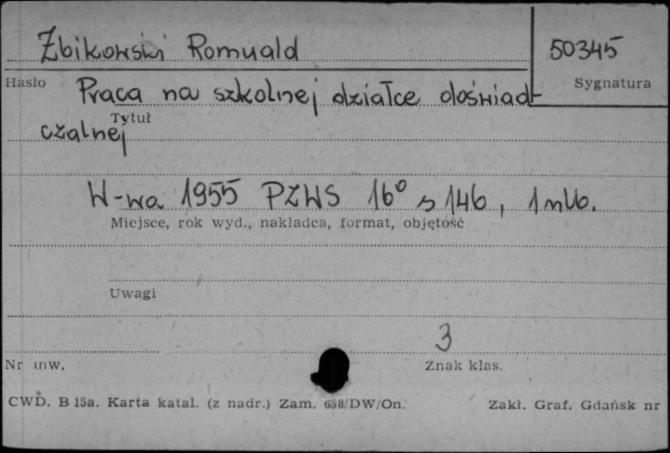 Żbikowski Romuald
50345
Hasło
Sygnatura
Praca na szkolnej działce doświad-
Tytuł
czalnej
W-wa 1955 PZWS 16° s 146, 1 nlb.
Miejsce, rok wyd., nakładca, format, objętość
Uwagi
3
Nr inw.
Znak klas.
CWD. B 15a. Karta katal. (z nadr.) Zam. 658/DW/On.
Zakł. Graf. Gdańsk nr